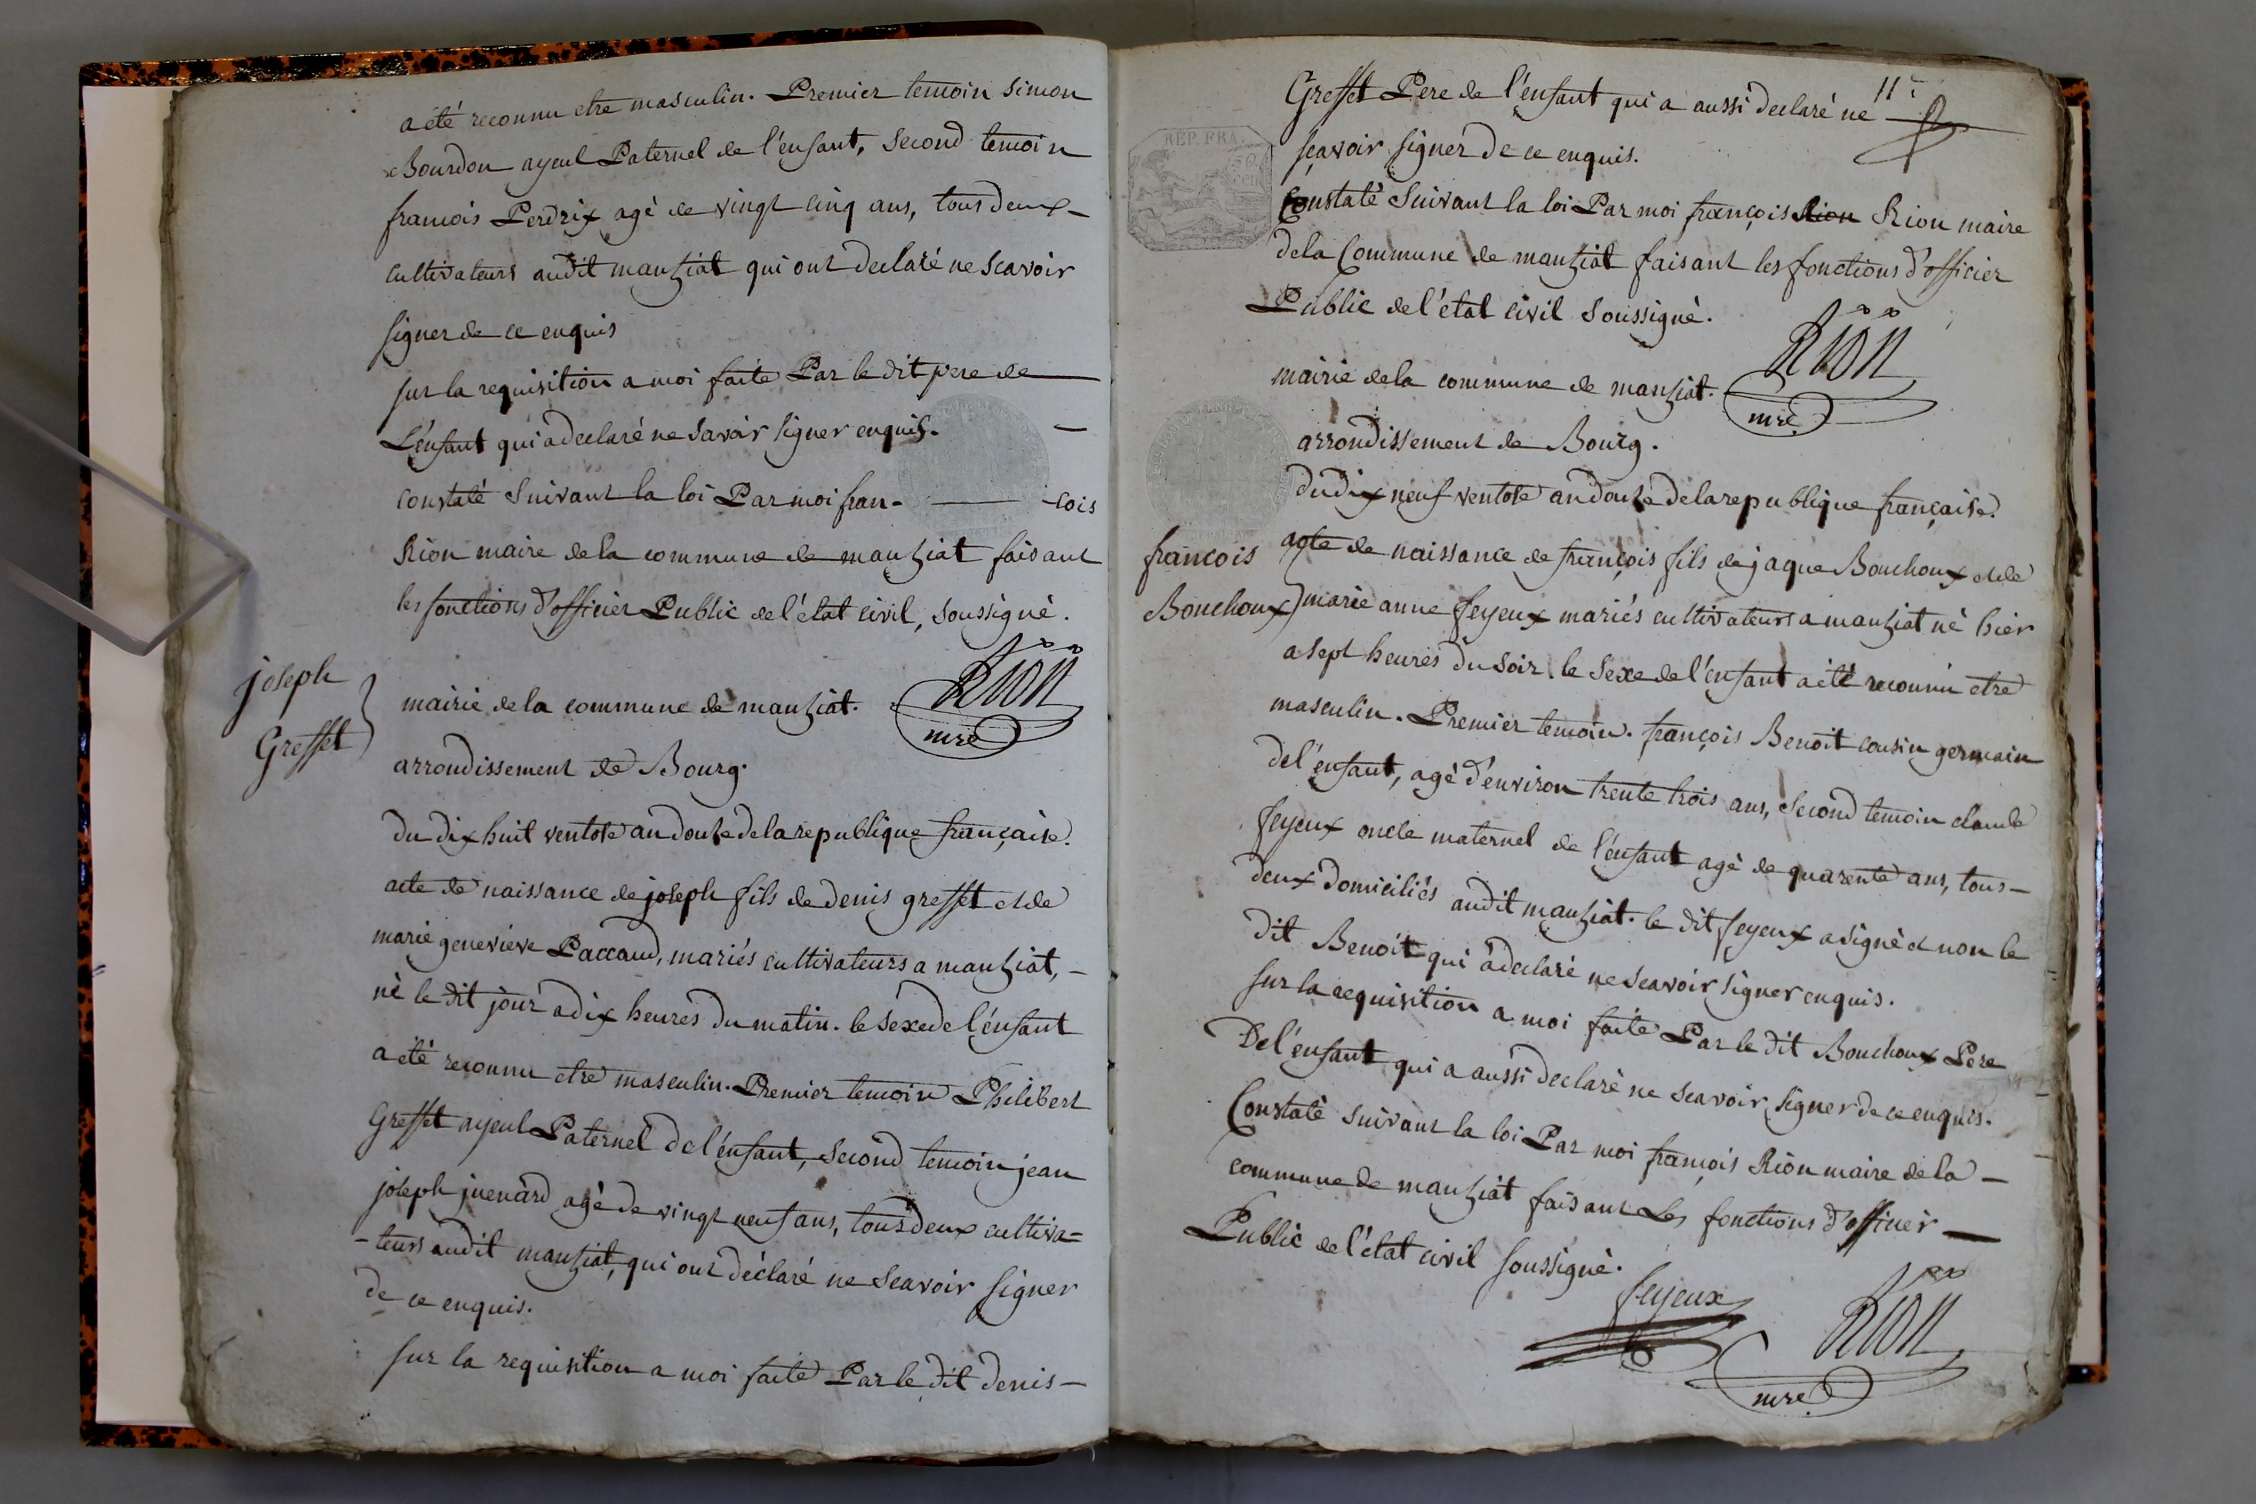 a été reconnu etre masculin. Premier temoin simon
Bourdon ayeul Paternel de l'enfant, second temoin
francois Perdrix agé de vingt cinq ans, tous deux -
cultivateurs audit manziat qui ont declaré ne scavoir
signer de ce enquis
sur la requisition a moi faite Par le dit pere de
L'enfant qui a declaré ne savoir signer enquis. -
constaté suivant la loi Par moi fran- -cois
Rion maire de la commune de manziat faisant
les fonctions d'officier Public de l'état civil, soussigné.
Rion
mre
joseph
Greffet
mairie de la commune de manziat.
arrondissement de Bourg.
du dix huit ventose an douze de la republique française.
acte de naissance de joseph fils de denis greffet et de
marie genevieve Paccaud, mariés cultivateurs a manziat, -
né le dit jour a dix heures du matin. le sexe de l'énfant
a été reconnu etre masculin. Premier temoin Philibert
Greffet ayeul Paternel de l'énfant, second temoin jean
joseph juenard agé de vingt neuf ans, tous deux cultiva=
-teurs audit manziat, qui ont déclaré ne scavoir signer
de ce enquis.
sur la requisition a moi faite Par le dit denis -
11
Greffet Pere de l'énfant qui a aussi declaré ne
scavoir signer de ce enquis.
REP. FRA.
Constaté suivant la loi Par moi françois Rion Rion maire
de la Commune de manziat faisant les fonctions d'officier
Public de l'état civil soussigné.
Rion
mre
mairie de la commune de manziat.
arrondissement de Bourg.
du dix neuf ventose an douze de la republique française.
francois
Bouchoux
acte de naissance de françois fils de jaque Bouchoux et de
marie anne feyeux mariés cultivateurs a manziat né hier
a sept heures du soir. le sexe de l'énfant a été reconnu etre
masculin. Premier temoin. françois Benoit cousin germain
de l'énfant, agé d'environ trente trois ans, second temoin claude
feyeux oncle maternel de l'énfant agé de quarente ans, tous -
deux domiciliés audit manziat. le dit feyeux a signé et non le
dit Benoit qui a declaré ne scavoir signer enquis.
sur la requisition a moi faite Par le dit Bouchoux Pere
De l'énfant qui a aussi declaré ne scavoir signer de ce enquis.
Constaté suivant la loi Par moi françois Rion maire de la -
commune de manziat faisant Les fonctions d'officier -
Public de l'état civil soussigné.
feyeux
Rion
mre